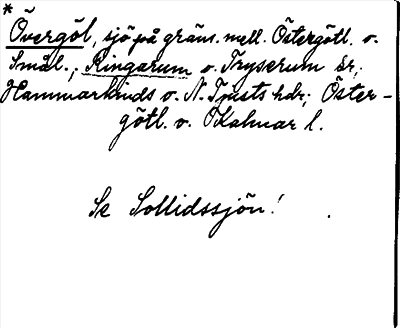 *
Övergöl, sjö på gräns. mell. Östergötl. o.
Smål.; Ringarum o. Tryserum sr;
Hammarkinds o. N. Tjusts hdr; Öster-
götl. o. Kalmar l.
Se Sollidssjön!